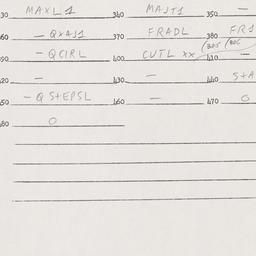 330 MAXL 1 340 MAJT1 350 —
360 — QXAJ1 370 FRADL 380 FR1
390 — QCIRL 400 CVTL xx 410 —
420 — 430 — 440 STA
450 — Q STEPSL 460 — 470 O
480 O